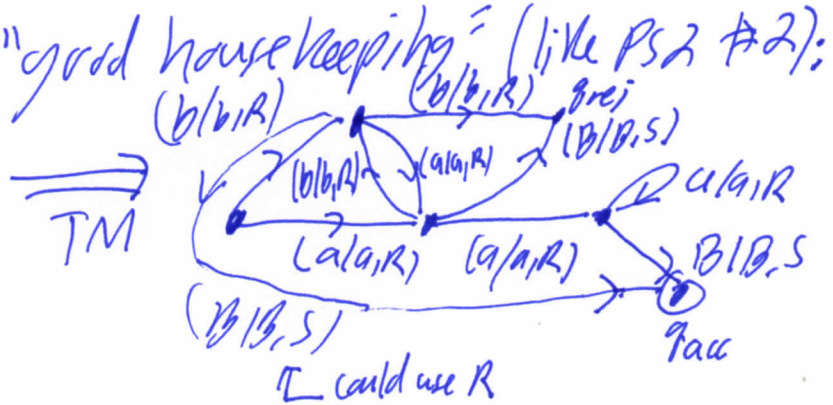 "good housekeeping" (like PS2 #2):
(b/b,R)
(b/b,R)
qrej
(B/B,S)
(b/b,R)
(a/a,R)
a/a,R
TM
(a/a,R)
(a/a,R)
B/B,S
(B/B,S)
qacc
could use R